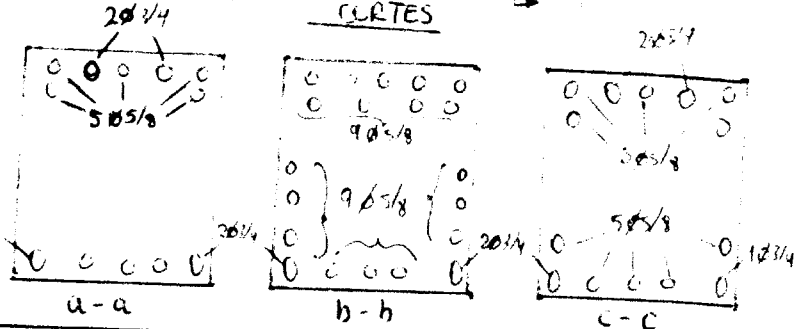 CORTES
2Ø3/4
5Ø5/8
a-a
2Ø3/4
9Ø5/8
9Ø5/8
b-b
2Ø3/4
2Ø3/4
5Ø5/8
5Ø5/8
1Ø3/4
c-c